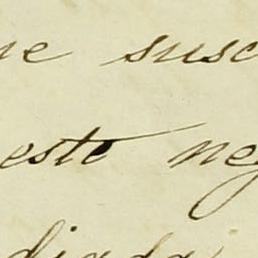 ue susc
este neg
diada